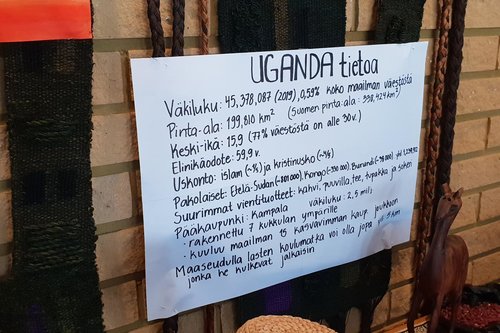 UGANDA tietoa
Väkiluku: 45,378,087 (2019), 0,59% koko maailman väestöstä
Pinta-ala: 199,810 km² (Suomen pinta-ala: 338,424 km²)
Keski-ikä: 15,9 (77% väestöstä on alle 30v.)
Elinikäodote: 59,9 v.
Uskonto: islam (~⅕) ja kristinusko (~⅘)
Pakolaiset: Etelä-Sudan (~801000), Kongo (~330000), Burundi (~38000), yht
Suurimmat vientituotteet: kahvi, puuvilla, tee, tupakka ja sokeri
Pääkaupunki: Kampala väkiluku: 2,5 milj.
- rakennettu 7 kukkulan ympärille
- kuuluu maailman 15 kasvavimman kaup. joukkoon
Maaseudulla lasten koulumatka voi olla jopa yli 5 km
jonka he kulkevat jalkaisin